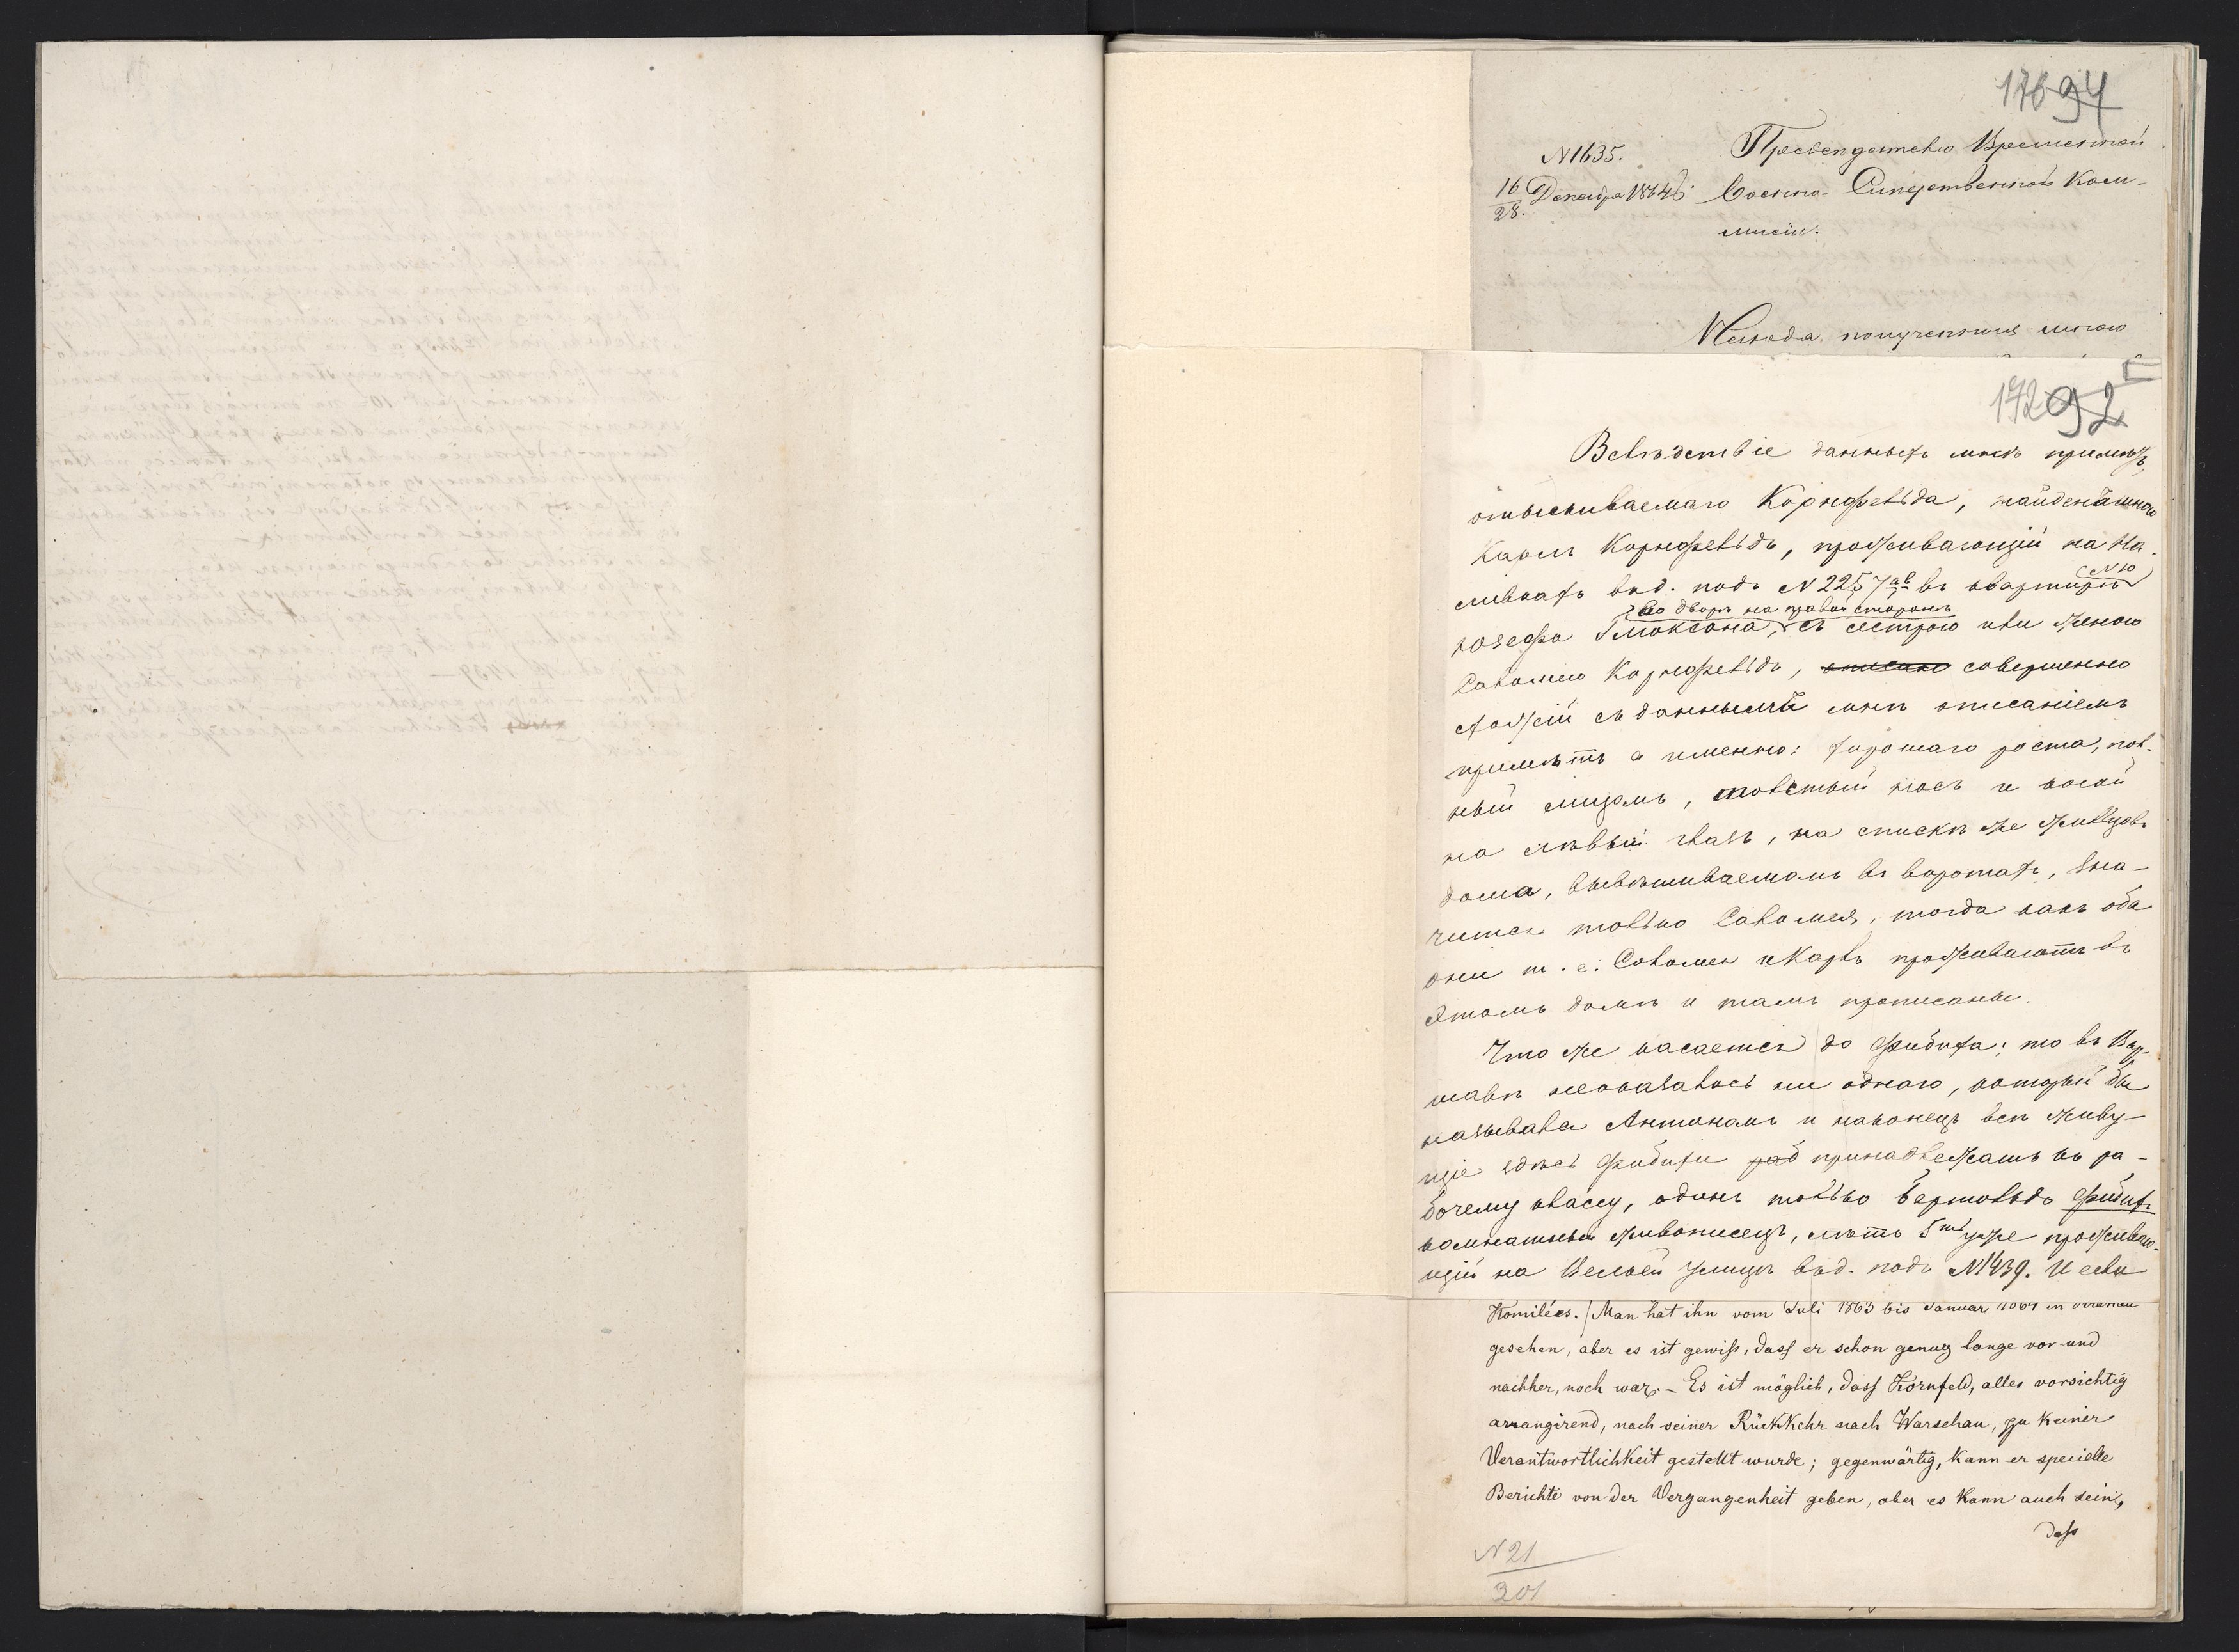 176 94
N 1635.
16/28. Декабря 1864 г.
Президенту Временной
Военно-Следственной Ком-
мисіи.
получения мною
172 92
Вслѣдствіе данныхъ мнѣ примѣтъ
отыскиваемаго Корнфельда, найденъ мною
Карлъ Корнфельдъ, проживающій на На-
левкахъ влд. подъ N 2257 ав въ квартирѣ (N 10
во дворѣ на правой сторонѣ
Юзефа съ сестрою или женою
Саломею Корнфельдъ, описанъ совершенно
схожій съ данными мнѣ описаніемъ
примѣтъ а именно: хорошаго роста, пол-
ный лицомъ, толстый носъ и косой
на лѣвый глазъ, на спискѣ же жильцовъ
дома, вывѣшиваемомъ въ воротахъ, зна-
чится только Саломея, тогда какъ оба
они т. е. Саломея и Карлъ проживаютъ въ
этомъ домѣ и тамъ прописаны.
Что же касается до Фибиха; то въ Вар-
шавѣ не оказалось ни однаго, который бы
назывался Антономъ и наконецъ всѣ живу-
щіе здѣсь Фибихи раб принадлежатъ къ ра-
бочему классу, одинъ только Бертольдъ Фибихъ
комнатный живописецъ, лѣтъ 5ть уже проживаю-
щій на Велькей улицѣ влд. подъ N 1439. И если
Komitées. / Man hat ihn vom Juli 1863 bis Januar 1864 in
gesehen, aber es ist gewiß, dass er schon genug lange vor und
nachher, noch war. – Es ist möglich, dass Kornfeld, alles vorsichtig
arrangirend, nach seiner Rückkehr nach Warschau, zu keiner
Verantwortlichkeit gestellt wurde; gegenwärtig, kann er specielle
Berichte von der Vergangenheit geben, aber es kann auch sein,
dass
N 21
201